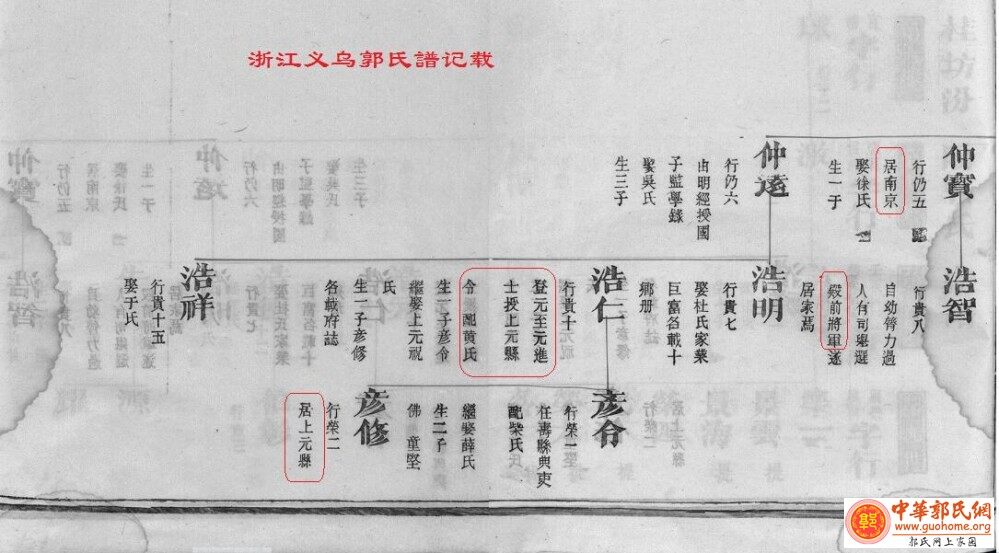 浙江义乌郭氏譜记载
仲實
行仍五
居南京
娶徐氏
生一子
仲遠
行仍六
由明經授國
子監學錄
娶吳氏
生三子
浩智
行貴八
自幼膂力過
人有司選
殿前將軍遂
居家焉
浩明
行貴七
娶杜氏家業
巨富名載十
鄉册
浩仁
行貴十一
登元至元進
士授上元縣
令配黄氏
生一子彥令
繼娶上元祝
氏
生一子彥修
名載府誌
浩祥
行貴十五
娶于氏
彥令
行榮一
任壽縣典吏
配柴氏
繼娶薛氏
生二子
佛童堅
彥修
行榮二
居上元縣
中華郭氏網
www.guohome.org
郭氏网上家园